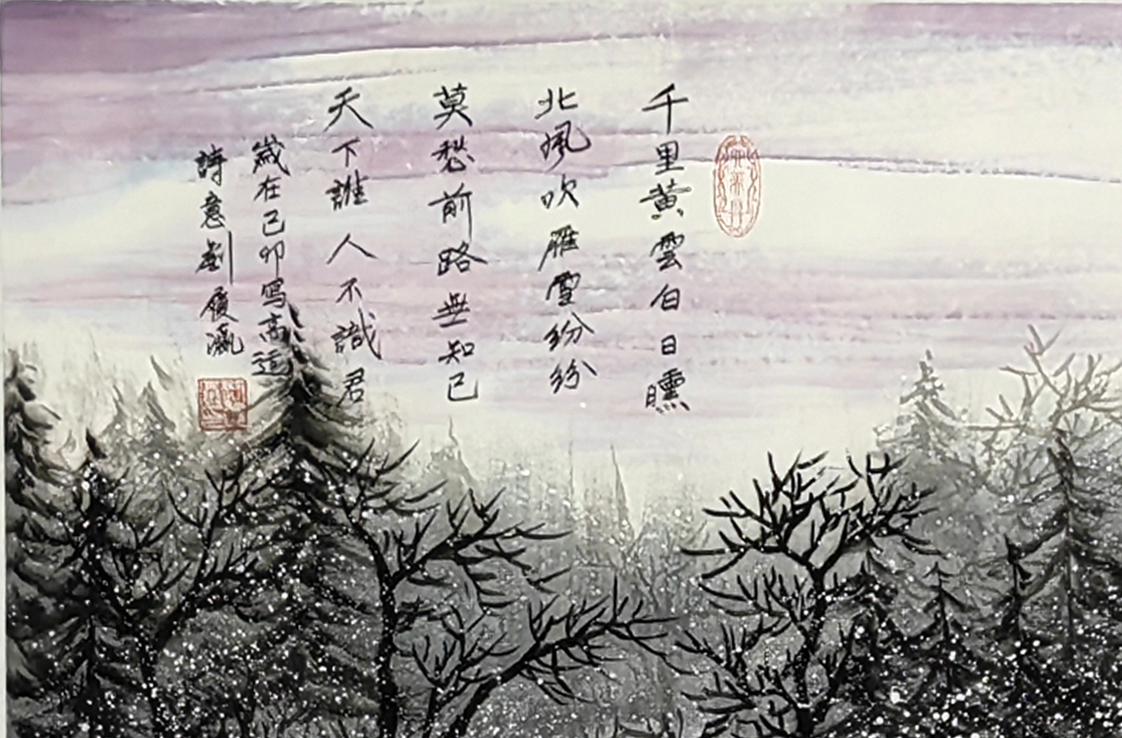 千里黄雲白日曛
北風吹雁雪紛紛
莫愁前路無知己
天下誰人不識君
歲在己卯寫高适
詩意劉履瀛